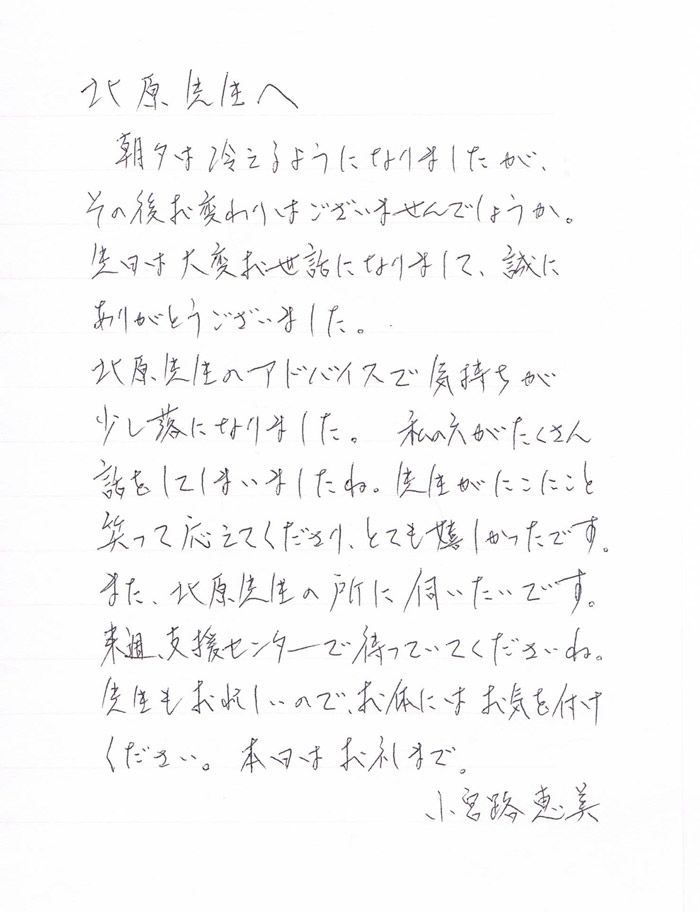 北原先生へ
朝夕は冷えるようになりましたが、
その後お変わりはございませんでしょうか。
先日は大変お世話になりまして、誠に
ありがとうございました。
北原先生のアドバイスで気持ちが
少し落になりました。 私の方がたくさん
話をしてしまいましたね。先生がにこにこと
笑って応えてくださり、とても嬉しかったです。
また、北原先生の所に伺いたいです。
来週、支援センターで待っていてくださいね。
先生もお忙しいので、お体にはお気を付け
ください。本日はお礼まで。
小宮路恵美